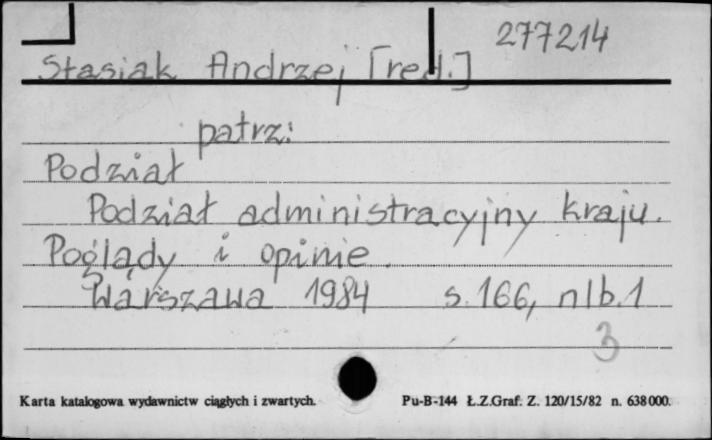 277214
Stasiak Andrzej [red.]
patrz:
Podział
Podział administracyjny kraju.
Poglądy i opinie.
Warszawa 1984 s. 166, nlb. 1
3
Karta katalogowa wydawnictw ciągłych i zwartych. Pu-B-144 Ł.Z.Graf. Z. 120/15/82 n. 638000.